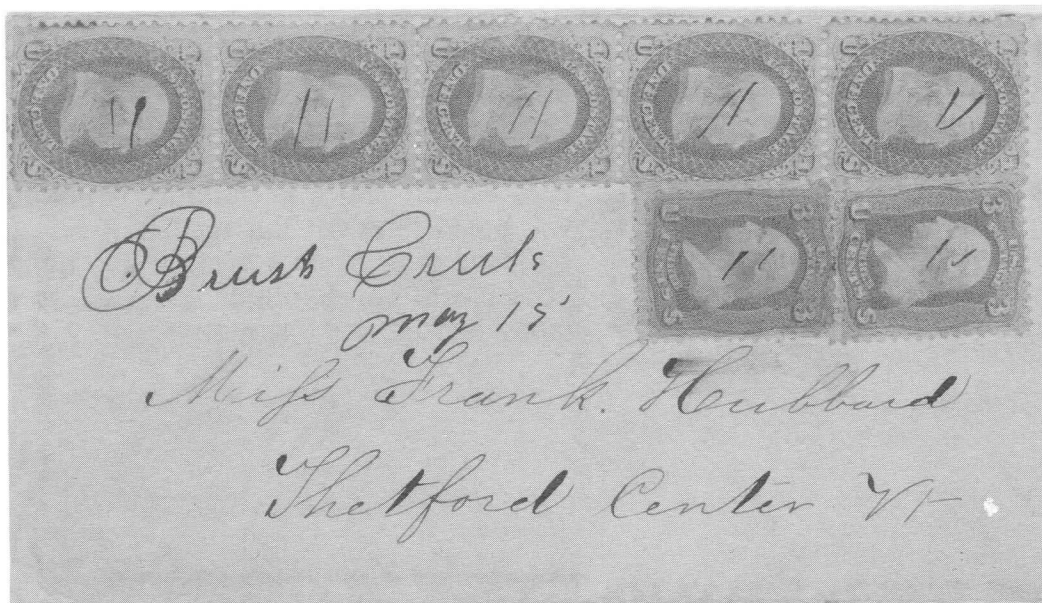 Brush Creek
May 15
Miss Frank. Hubbard
Thetford Center Vt